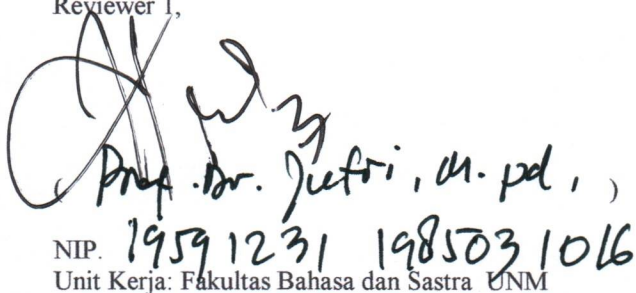 Reviewer 1,
( Prof. Dr. Jufri, M. pd, )
NIP. 19591231 198503 1016
Unit Kerja: Fakultas Bahasa dan Sastra UNM